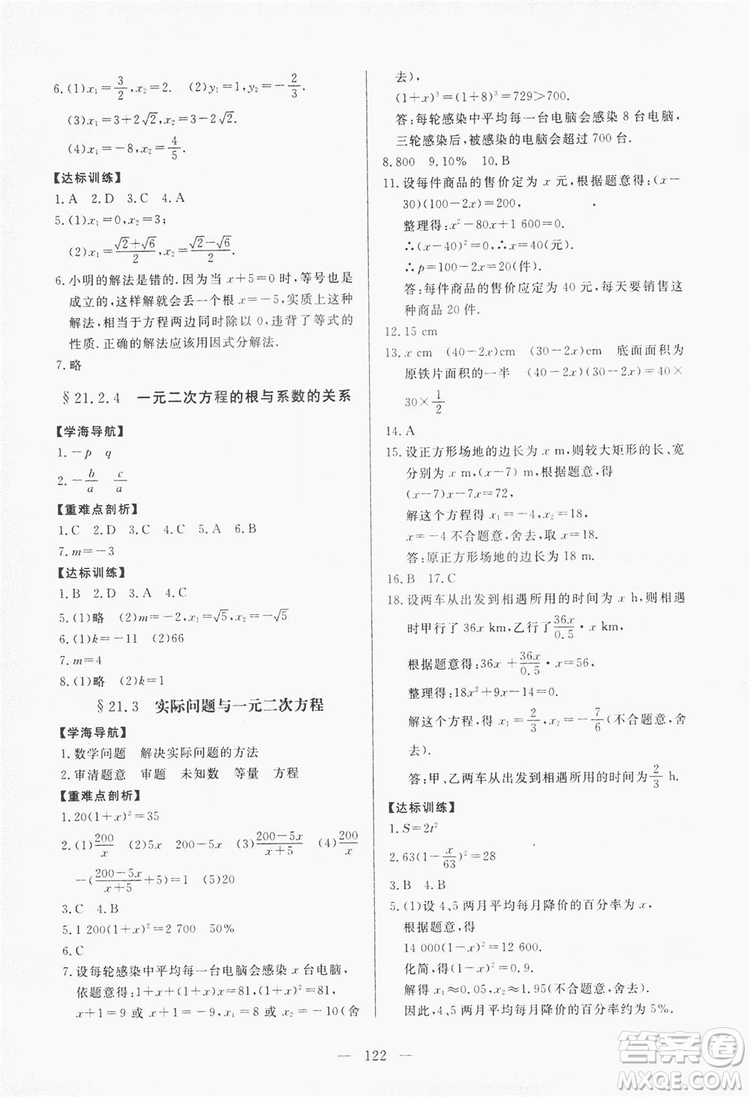 6.(1)x₁=3/2,x₂=2. (2)y₁=1,y₂=-2/3.
(3)x₁=3+2√2,x₂=3-2√2.
(4)x₁=-8,x₂=4/5.
【达标训练】
1.A 2.D 3.C 4.A
5.(1)x₁=0,x₂=3;
(2)x₁=(√2+√6)/2,x₂=(√2-√6)/2.
6.小明的解法是错的.因为当x+5=0时,等号也是
成立的,这样解就丢了一个根x=-5,实际上这种
解法,相当于方程两边同时除以0,违背了等式的
性质.正确的解法应该用因式分解法.
7.略
§21.2.4 一元二次方程的根与系数的关系
【学海导航】
1.-p q
2.-b/a c/a
【重难点剖析】
1.C 2.D 3.C 4.B 5.A 6.D
7.m=-3
【达标训练】
1.B 2.D 3.A 4.D
5.(1)略 (2)m=-2,x₁=√5,x₂=-√5
6.(1)k=-11 (2)66
7.m=4
8.(1)略 (2)k=1
§21.3 实际问题与一元二次方程
【学海导航】
1.数学问题 解决实际问题的方法
2.审清题意 审题 未知数 等量 方程
【重难点剖析】
1.20(1+x)²=35
2.(1)200/x (2)5x 200-5x (3)(200-5x)/(x+5) (4)200/x
-(200-5x)/(x+5)=5 (5)略
3.C 4.B
5.1 200(1+x)²=2 700 50%
6.C
7.设每轮感染中平均每一台电脑会感染x台电脑,
依题意得:1+x+(1+x)x=81,(1+x)²=81,
x+1=9或x+1=-9,x₁=8,x₂=-10(舍
去),
(1+x)³=(1+8)³=729>700.
答:每轮感染中平均每一台电脑会感染8台电脑,
三轮感染后,被感染的电脑会超过700台.
8.800 9.10% 10.B
11.设每件商品的售价定为x元,根据题意得:(x-
30)(100-2x)=200,
整理得:x²-80x+1 600=0.
∴(x-40)²=0,∴x₁=x₂=40.
∴p=100-2x=20(件).
答:每件商品的售价应定为40元,每天要销售这
种商品20件.
12.15 cm
13.x cm (40-2x) (30-2x) cm 底面面积为
原铁片面积的一半 (40-2x)(30-2x)=40×
30×1/2
14.A
15.设正方形场地的边长为x m,则较大矩形的长、宽
分别为x m、(x-7) m,根据题意,得
(x-7)x-7x=72,
解这个方程得x₁=-4,x₂=18.
x=-4不合题意,舍去;
答:原正方形场地的边长为18 m.
16.B 17.C
18.设两车从出发到相遇所用的时间为x h,则相遇
时甲行了36x km,乙行了36x/0.5·x km,
根据题意得:36x+36x/0.5·x=56,
整理得:18x²+9x-14=0,
解这个方程,得x₁=2/3,x₂=-7/6(不合题意,舍
去).
答:甲、乙两车从出发到相遇所用的时间为2/3 h.
【达标训练】
1.S=2t²
2.63(1-x/63)²=28
3.B 4.B
5.(1)设4、5两月平均每月降价的百分率为x,
根据题意,得
14 000(1-x)²=12 600,
化简,得(1-x)²=0.9.
解得x₁≈0.05,x₂≈1.95(不合题意,舍去).
因此,4、5两月平均每月降价的百分率约为5%.
— 122 —
答案圈
MXQE.COM